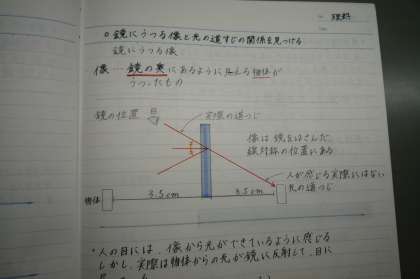 理科
○鏡にうつる像と光の道すじの関係を見つける
鏡にうつる像
像…鏡の奥にあるように見える物体が
うつったもの
鏡の位置 目 実際の道すじ
像は鏡をはさんだ、
線対称の位置にある
人が感じる実際にはない
光の道すじ
物体 3.5cm 3.5cm
・人の目には、像から光がでているように感じる
しかし、実際は物体からの光が鏡に反射して、目に